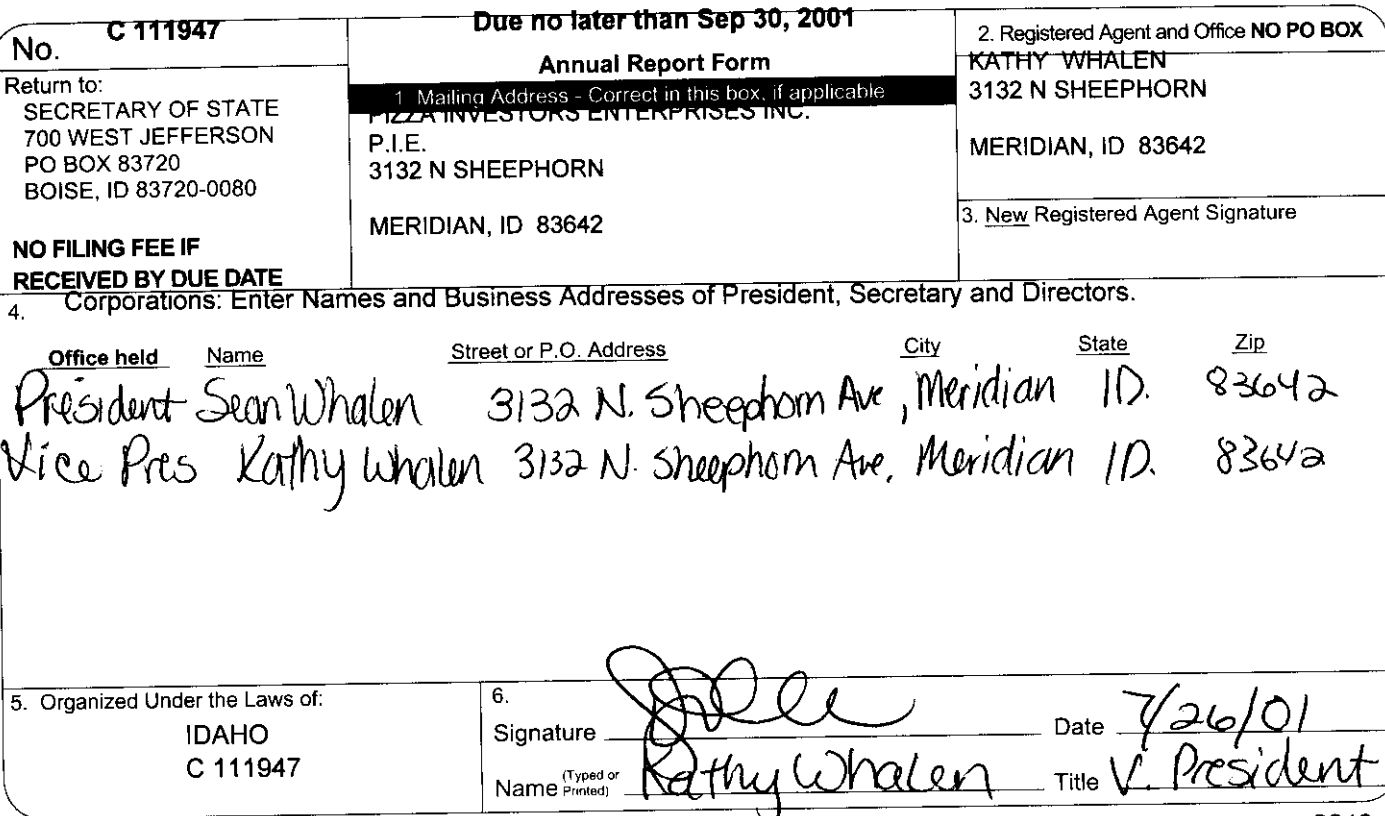 No. C 111947
Return to:
SECRETARY OF STATE
700 WEST JEFFERSON
PO BOX 83720
BOISE, ID 83720-0080
NO FILING FEE IF
RECEIVED BY DUE DATE
Due no later than Sep 30, 2001
Annual Report Form
1 Mailing Address - Correct in this box, if applicable
PIZZA INVESTORS ENTERPRISES INC.
P.I.E.
3132 N SHEEPHORN
MERIDIAN, ID 83642
2. Registered Agent and Office NO PO BOX
KATHY WHALEN
3132 N SHEEPHORN
MERIDIAN, ID 83642
3. New Registered Agent Signature
4. Corporations: Enter Names and Business Addresses of President, Secretary and Directors.
Office held Name Street or P.O. Address City State Zip
President Sean Whalen 3132 N. Sheephorn Ave, Meridian ID. 83642
Vice Pres Kathy Whalen 3132 N. Sheephorn Ave, Meridian ID. 83642
5. Organized Under the Laws of:
IDAHO
C 111947
6.
Signature Date 7/26/01
Name (Typed or Printed) Kathy Whalen Title V. President